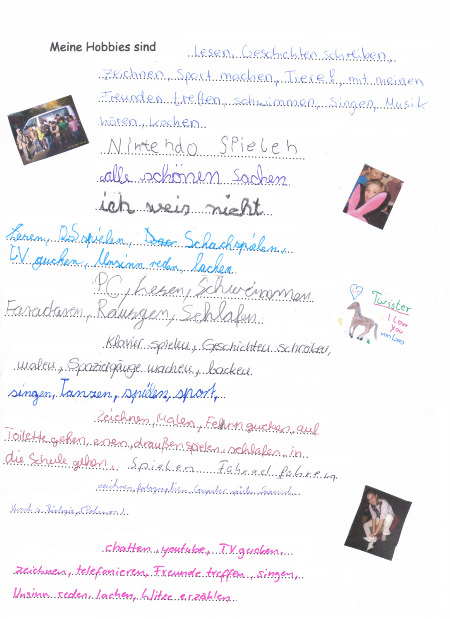 Meine Hobbies sind Lesen, Geschichten schreiben,
zeichnen, Sport machen, Tiere, mit meinen
Freunden treffen, schwimmen, Singen, Musik
hören, kochen
Nintendo Spielen
alle schönen Sachen
ich weis nicht
Lesen, DS spielen, Schachspielen,
TV gucken, Unsinn reden, lachen
PC, Lesen, Schwimmen
Twister
I Love
you
von Lara
Räumen, Schlafen
Klavier spielen, Geschichten schreiben,
malen, Spaziergänge machen, backen
singen, Tanzen, spielen, sport,
zeichnen, Malen, Fehrn gucken, auf
Toilette gehen, essen, draußen spielen, schlafen, in
die Schule gehen, Spielen Fahrrad fahren
zeichnen, Computer spielen
chatten, youtube, TV gucken,
zeichnen, telefonieren, Freunde treffen, singen,
Unsinn reden, lachen, Witze erzählen